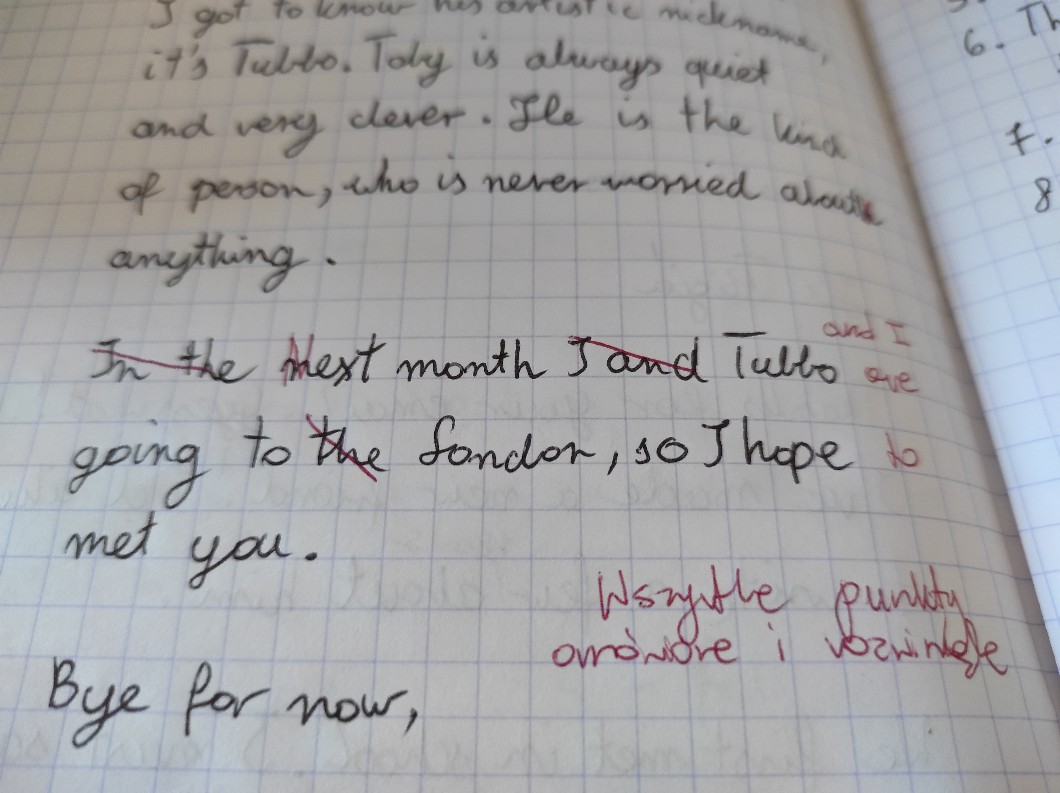 I got to know his artistic nickname,
it's Tubbo. Toby is always quiet
and very clever. He is the kind
of person, who is never worried about
anything.
and I
In the Next month I and Tubbo are
going to the London, so I hope to
met you.
Wszystkie punkty
omówione i rozwinięte
Bye for now,
6. Th
7.
8